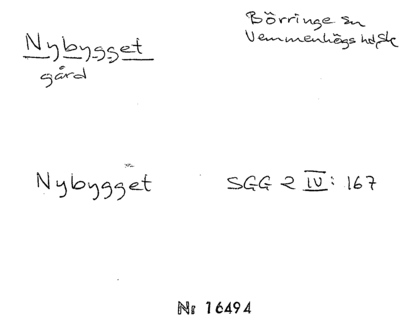 Nybygget
gård
Börringe sn
Vemmenhögs hd, Sk
Nybygget SGG 2 IV: 167
Nr 16494